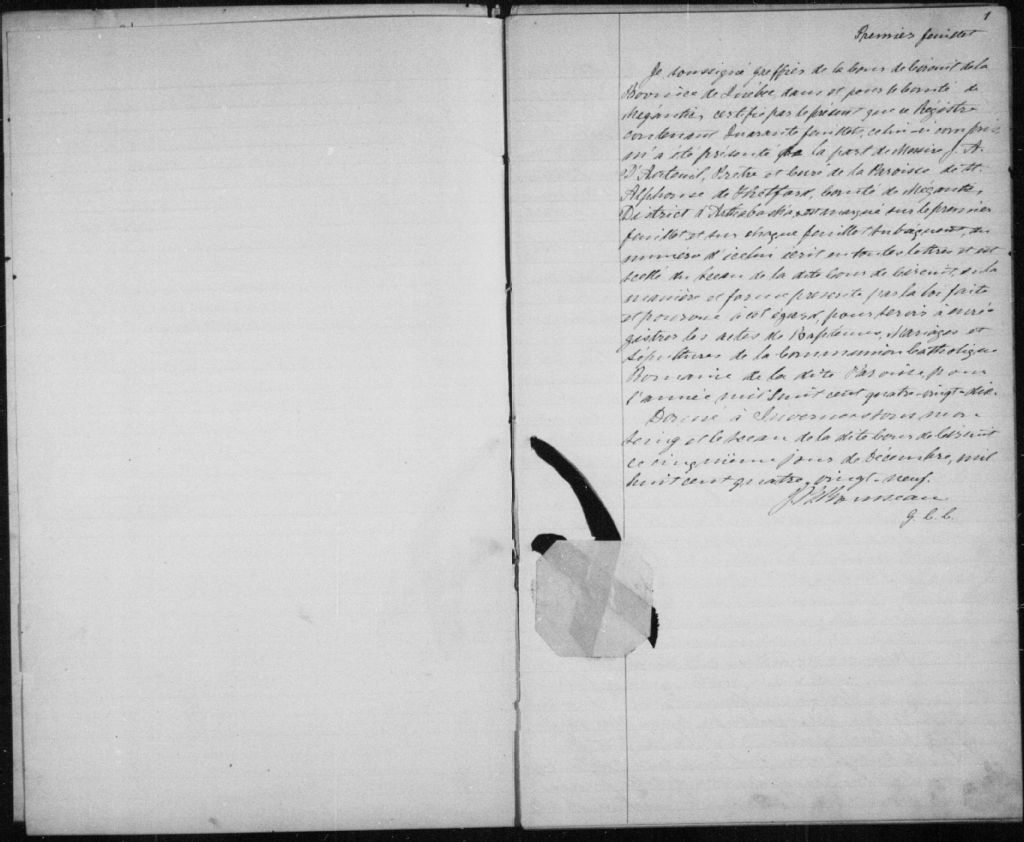 1
Premier feuillet
Je soussigné greffier de la Cour de Circuit de la
Province de Québec, dans et pour le Comté de
Mégantic, certifie par le présent que ce Régistre
contenant Quarante feuillets, celui-ci compris,
m'a été présenté de la part de Messire J. A.
D'Auteuil, Prêtre et Curé de la Paroisse de St.
Alphonse de Thetford, Comté de Mégantic,
District d'Arthabaska, est marqué sur le premier
feuillet et sur chaque feuillet subséquent, du
numéro d'icelui écrit en toutes lettres et est
scellé du sceau de la dite Cour de Circuit, en la
manière et forme prescrite par la loi faite
et pourvue à cet égard, pour servir à enré-
gistrer les actes de Baptêmes, Mariages et
Sépultures de la Communion Catholique
Romaine de la dite Paroisse pour
l'année mil huit cent quatre-vingt-dix.
Donné à Inverness sous mon
seing et le sceau de la dite Cour de Circuit
ce cinquième jour de Décembre, mil
huit cent quatre-vingt-neuf.
Rousseau
G. C. C.